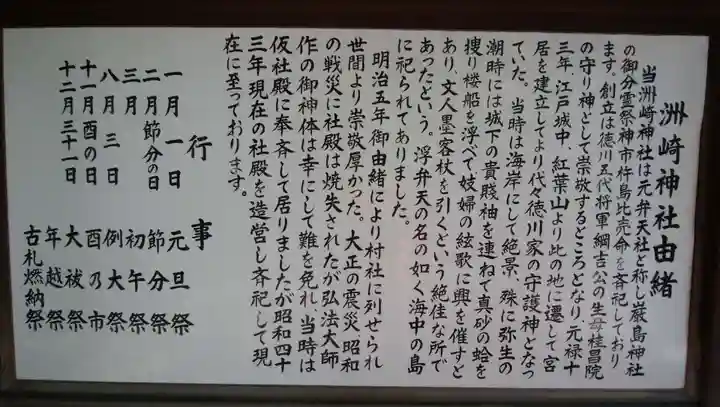 洲崎神社由緒
当洲崎神社は元弁天社と称し厳島神社
の御分霊祭神市杵島比売命を斉祀しており
ます。創立は徳川五代将軍綱吉公の生母桂昌院
の守り神として崇敬するところとなり、元禄十
三年、江戸城中、紅葉山より此の地に遷して宮
居を建立してより代々徳川家の守護神となっ
ていた。当時は海岸にして絶景、殊に弥生の
潮時には城下の貴賤袖を連ねて真砂の蛤を
捜り楼船を浮べて妓婦の絃歌に興を催すと
あり、文人墨客杖を引くという絶佳な所で
あったという。浮弁天の名の如く海中の島
に祀られてありました。
明治五年御由緒により村社に列せられ
世間より崇敬厚かった。大正の震災昭和
の戦災に社殿は焼失されたが弘法大師
作の御神体は幸にして難を免れ、当時は
仮社殿に奉斉して居りましたが昭和四十
三年現在の社殿を造営し斉祀して現
在に至っております。
行事
一月一日 元旦祭
二月節分の日 節分祭
三月 初午祭
八月三日 例大祭
十一月酉の日 酉の市
十二月三十一日 大祓祭
年越祭
古札燃納祭